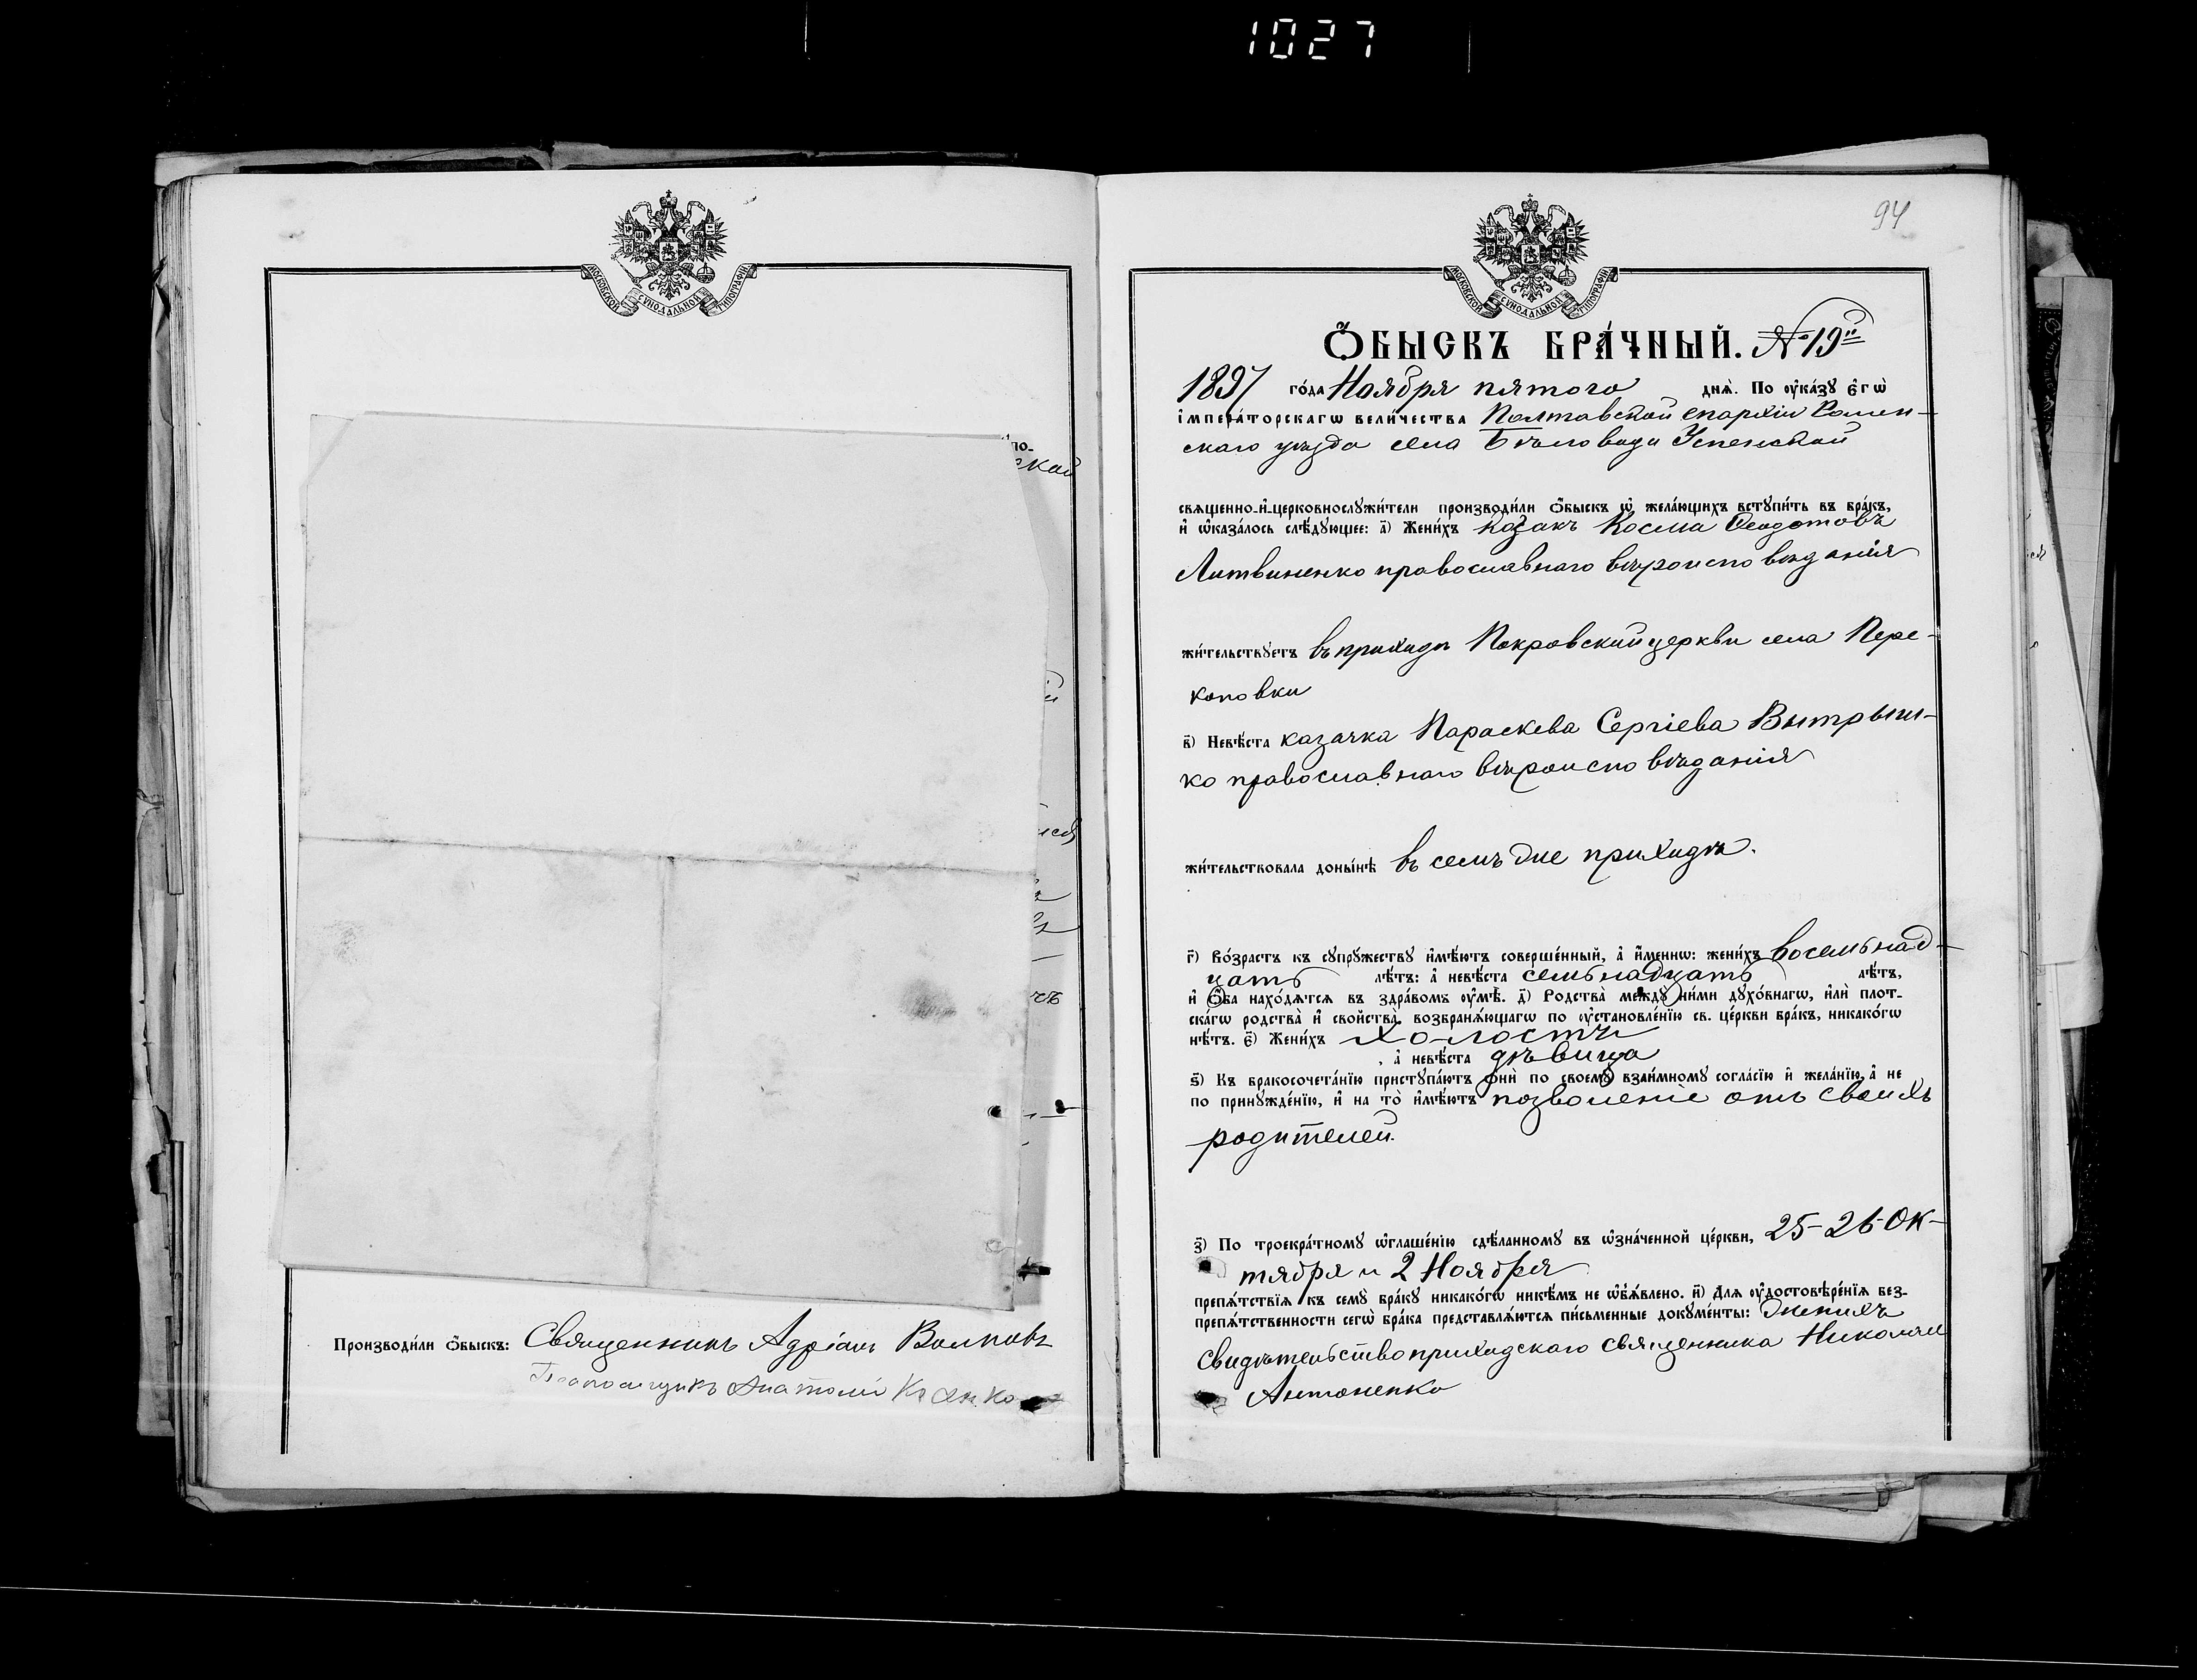 1027
МОСКОВСКОЙ СѴНОДАЛЬНОЙ ТИПОГРАФІИ
по-
ской
Производи́ли ѻ҆́быскъ: Священникъ Адріанъ Волковъ
Псаломщикъ Анатолій
94
МОСКОВСКОЙ СѴНОДАЛЬНОЙ ТИПОГРАФІИ
Ѻ҆́БЫСКЪ БРА́ЧНЫЙ. № 19й
1897 го́да Ноября пятого днѧ̀. По ᲂу҆ка́зꙋ є҆гѡ̀
і҆мпера́торскагѡ вели́чества Полтавской епархіи Ромен-
скаго уѣзда села Бѣловоди Успенской
свѧщенно-и҆-церковнослꙋжи́тели производи́ли ѻ҆́быскъ ѡ҆ жела́ющихъ встꙋпи́ть въ бра́къ,
и҆ ѡ҆каза́лось слѣ́дꙋющее: а҃) Жени́хъ казакъ Косма Ѳеодотовъ
Литвиненко православнаго вѣроисповѣданія
жи́тельствꙋетъ въ приходѣ Покровской церкви села Пере-
коповки
в҃) Невѣ́ста казачка Параскева Сергіева
ко православнаго вѣроисповѣданія
жи́тельствовала доны́нѣ въ семъ же приходѣ.
г҃) Во́зрастъ къ сꙋпрꙋ́жествꙋ и҆мѣ́ютъ соверше́нный, а҆ и҆́меннѡ: жени́хъ восемьнад-
цать лѣ́тъ: а҆ невѣ́ста семьнадцать лѣ́тъ,
и҆ ѻ҆́ба нахо́дѧтсѧ въ здра́вомъ ᲂу҆мѣ̀. д҃) Родства̀ междꙋ̀ ни́ми дꙋхо́внагѡ, и҆лѝ плот-
ска́гѡ родства̀ и҆ свойства̀, возбранѧ́ющагѡ по ᲂу҆становле́нїю св. це́ркви бра́къ, никако́гѡ
нѣ́тъ. є҃) Жени́хъ холостъ
, а҆ невѣ́ста дѣвица
ѕ҃) Къ бракосочета́нїю пристꙋпа́ютъ ѻ҆нѝ по своемꙋ̀ взаи́мномꙋ согла́сїю и҆ жела́нїю, а҆ не
по принꙋжде́нїю, и҆ на то̀ и҆мѣ́ютъ позволеніе отъ своихъ
родителей.
з҃) По троекра́тномꙋ ѡ҆глаше́нїю сдѣ́ланномꙋ въ ѡ҆зна́ченной це́ркви, 25-26-Ок-
тября и 2 Ноября
препѧ́тствїѧ къ семꙋ̀ бра́кꙋ никако́гѡ никѣ́мъ не ѡ҆б̾ѧ́влено. и҃) Длѧ ᲂу҆достовѣре́нїѧ без-
препѧ́тственности сегѡ̀ бра́ка представлѧ́ютсѧ пи́сьменные докꙋме́нты: Женихъ
свидѣтельство приходскаго священника Николая
Антоненко